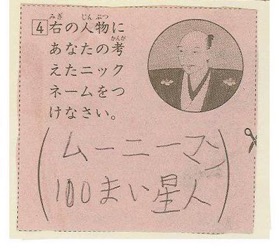 4 右の人物に
あなたの考
えたニック
ネームをつ
けなさい。
みぎ
じんぶつ
かんが
(ムーニーマン
100まい星人)